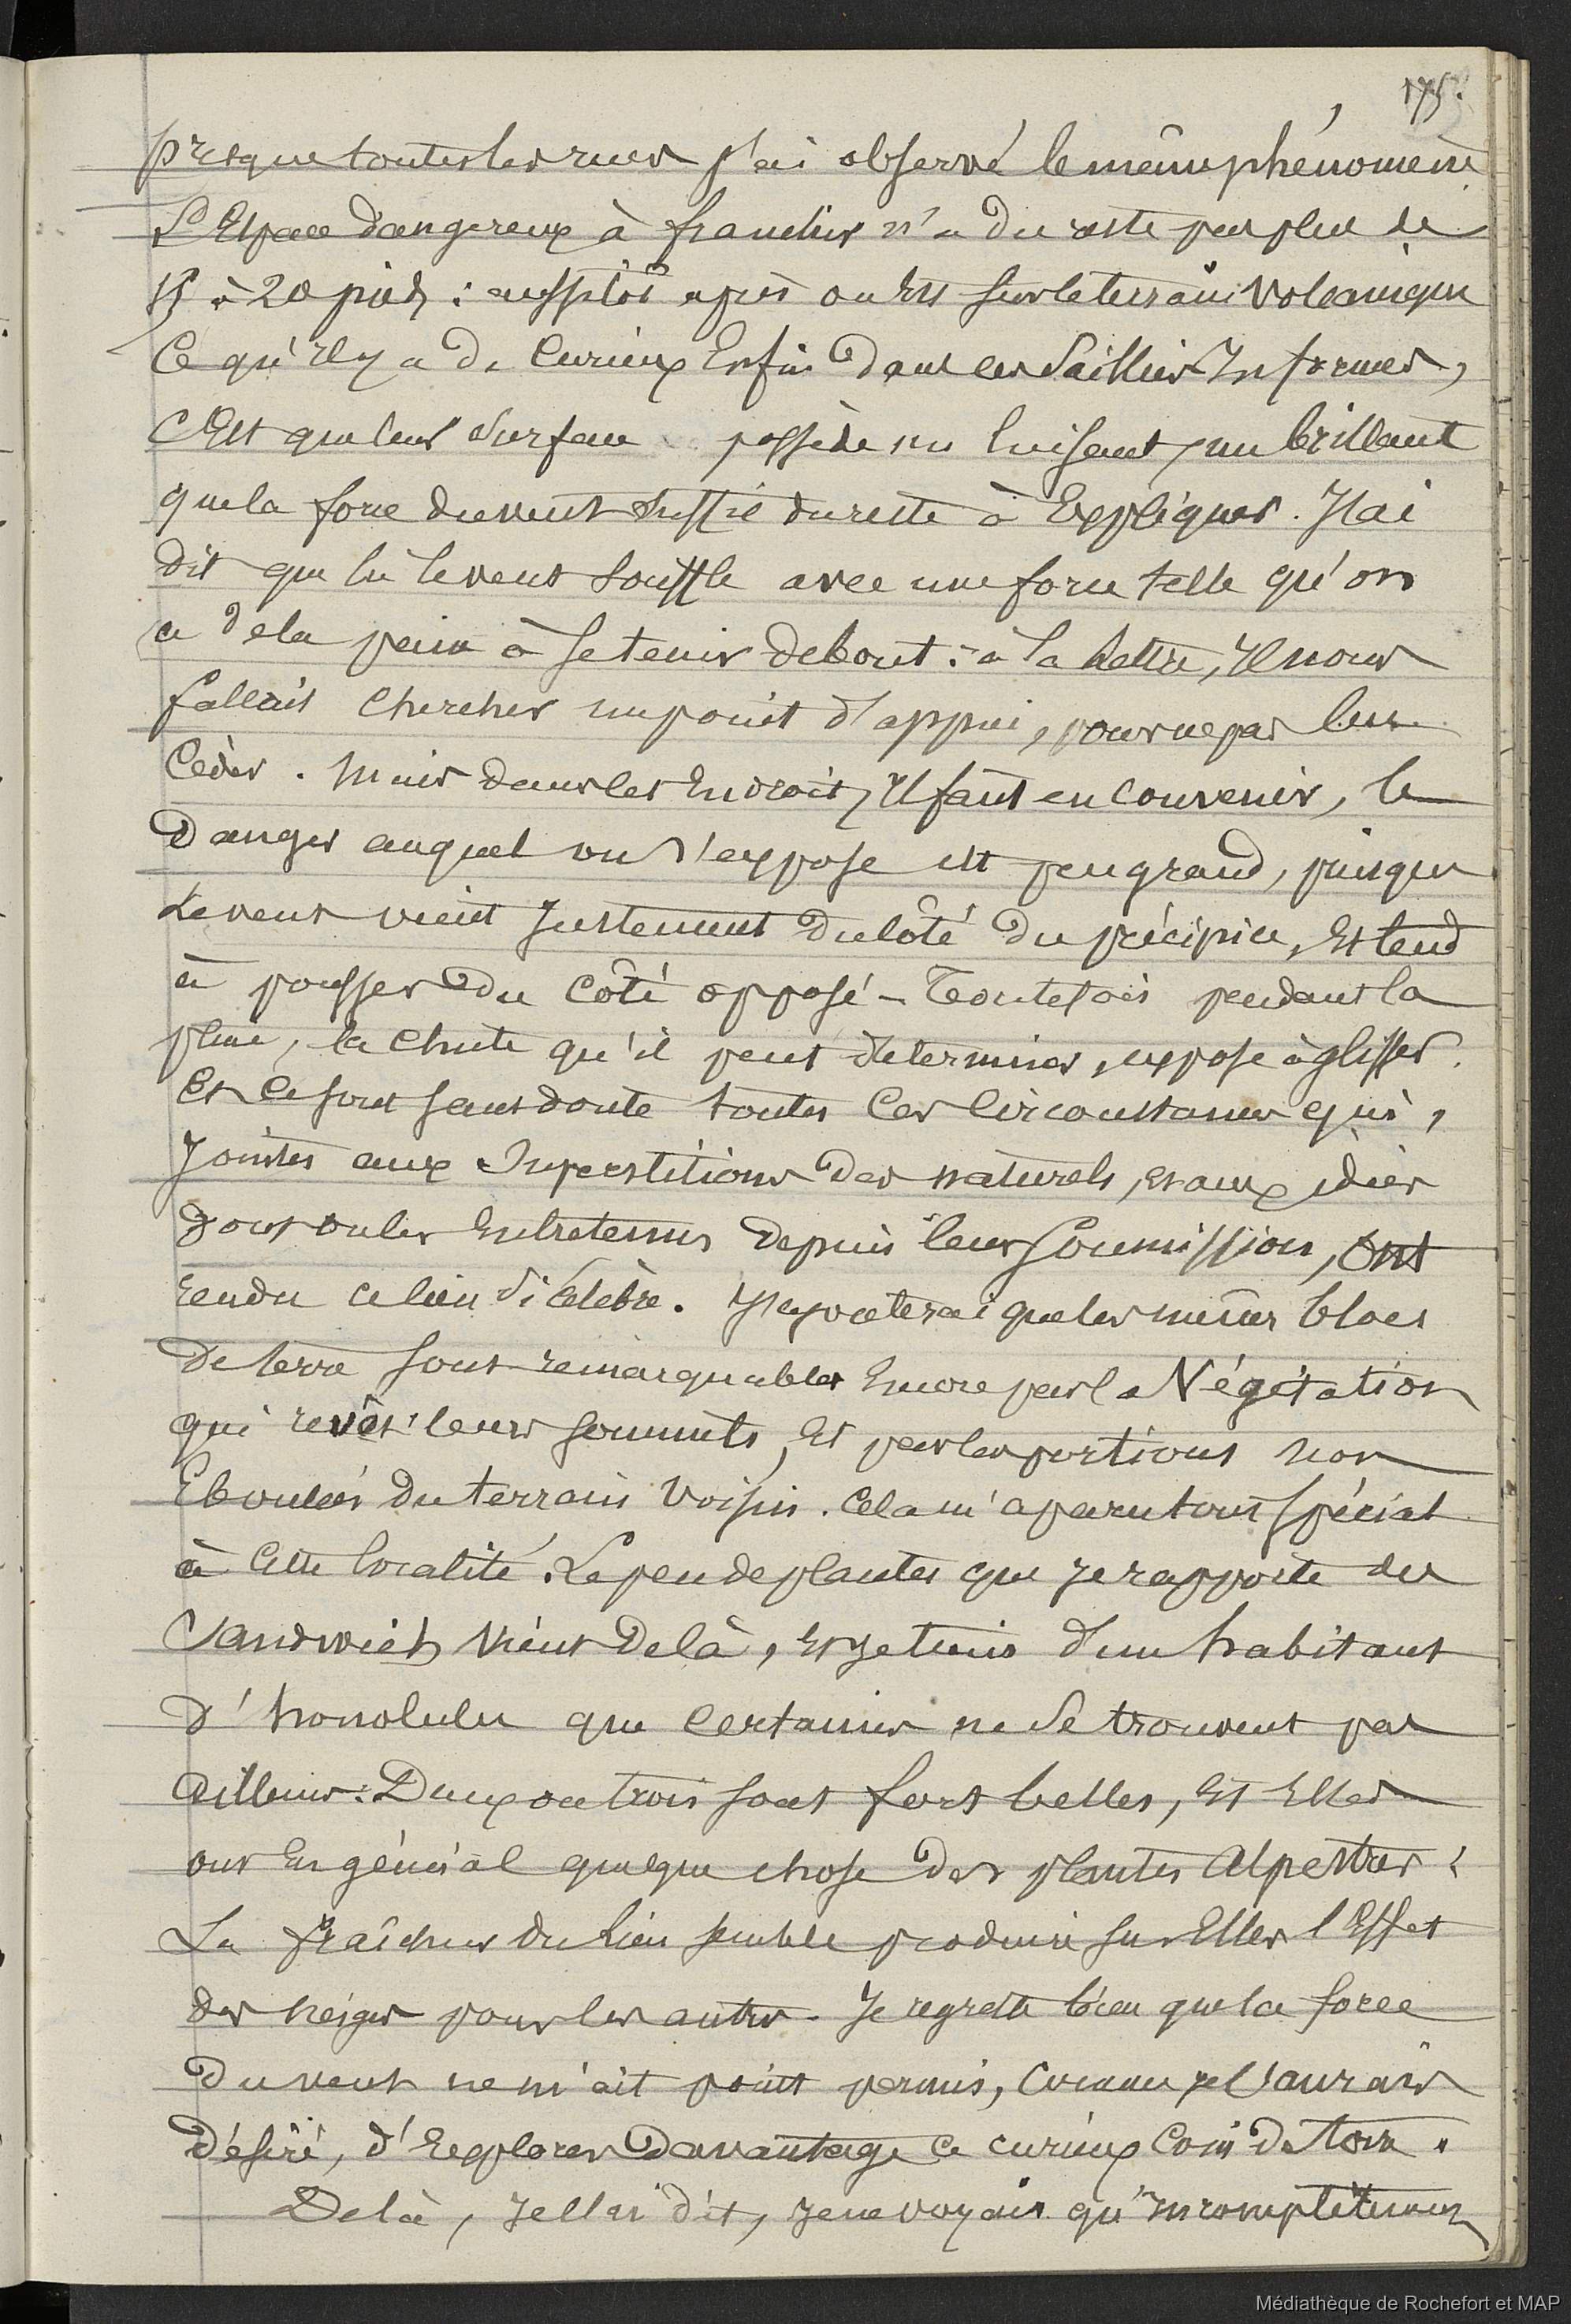 175.
presque toutes les rues j'ai observé le même phénomène
L'Espace dangereux à franchir n'a du reste pas plus de
15 à 20 pieds : aussitôt après on est sur le terrain volcanique
Ce qu'il y a de Curieux Enfin dans ces Saillies Informes,
C'Est que leur Surface possède un luisant, un brillant
que la force du vent suffit du reste à Expliquer. J'ai
dit que là le vent souffle avec une force telle qu'on
a de la peine à se tenir debout : à la lettre, Il nous
fallait Chercher un point d'appui, pour ne pas leur
Céder. Mais dans les Endroits, Il faut en Convenir, le
Danger auquel on s'expose est peu grand, puisque
Le vent vient Justement du Côté du précipice, Et tend
à pousser du Côté opposé - Toutefois pendant la
pluie, la Chute qu'il peut déterminer, expose à glisser.
Et Ce sont sans doute toutes Ces Circonstances qui,
Jointes aux Superstitions des naturels, et aux idées
dont on les Entretenus depuis leur Soumission, Ont
rendu ce lieu si Célèbre. J'ajouterai que les mêmes blocs
de terre sont remarquables Encore par la Végétation
qui revêt leurs sommets, Et par les portions non
Eboulées du terrain Voisin. Cela m'a paru tout spécial
à Cette localité. Le peu de plantes que je rapporte des
Sandwich Vient de là, Et je tiens d'un habitant
d'honolulu que Certaines ne se trouvent pas
Ailleurs. Deux ou trois sont fort belles, Et Elles
ont En général quelque chose des plantes Alpestres :
La fraîcheur du lieu semble produire sur Elles l'Effet
des neiges pour les autres. Je regrette bien que la force
du vent ne m'ait point permis, Comme je l'aurais
désiré, d'Explorer davantage Ce curieux Coin de terre.
De là, je l'ai dit, je ne voyais qu'Incomplètement
Médiathèque de Rochefort et MAP